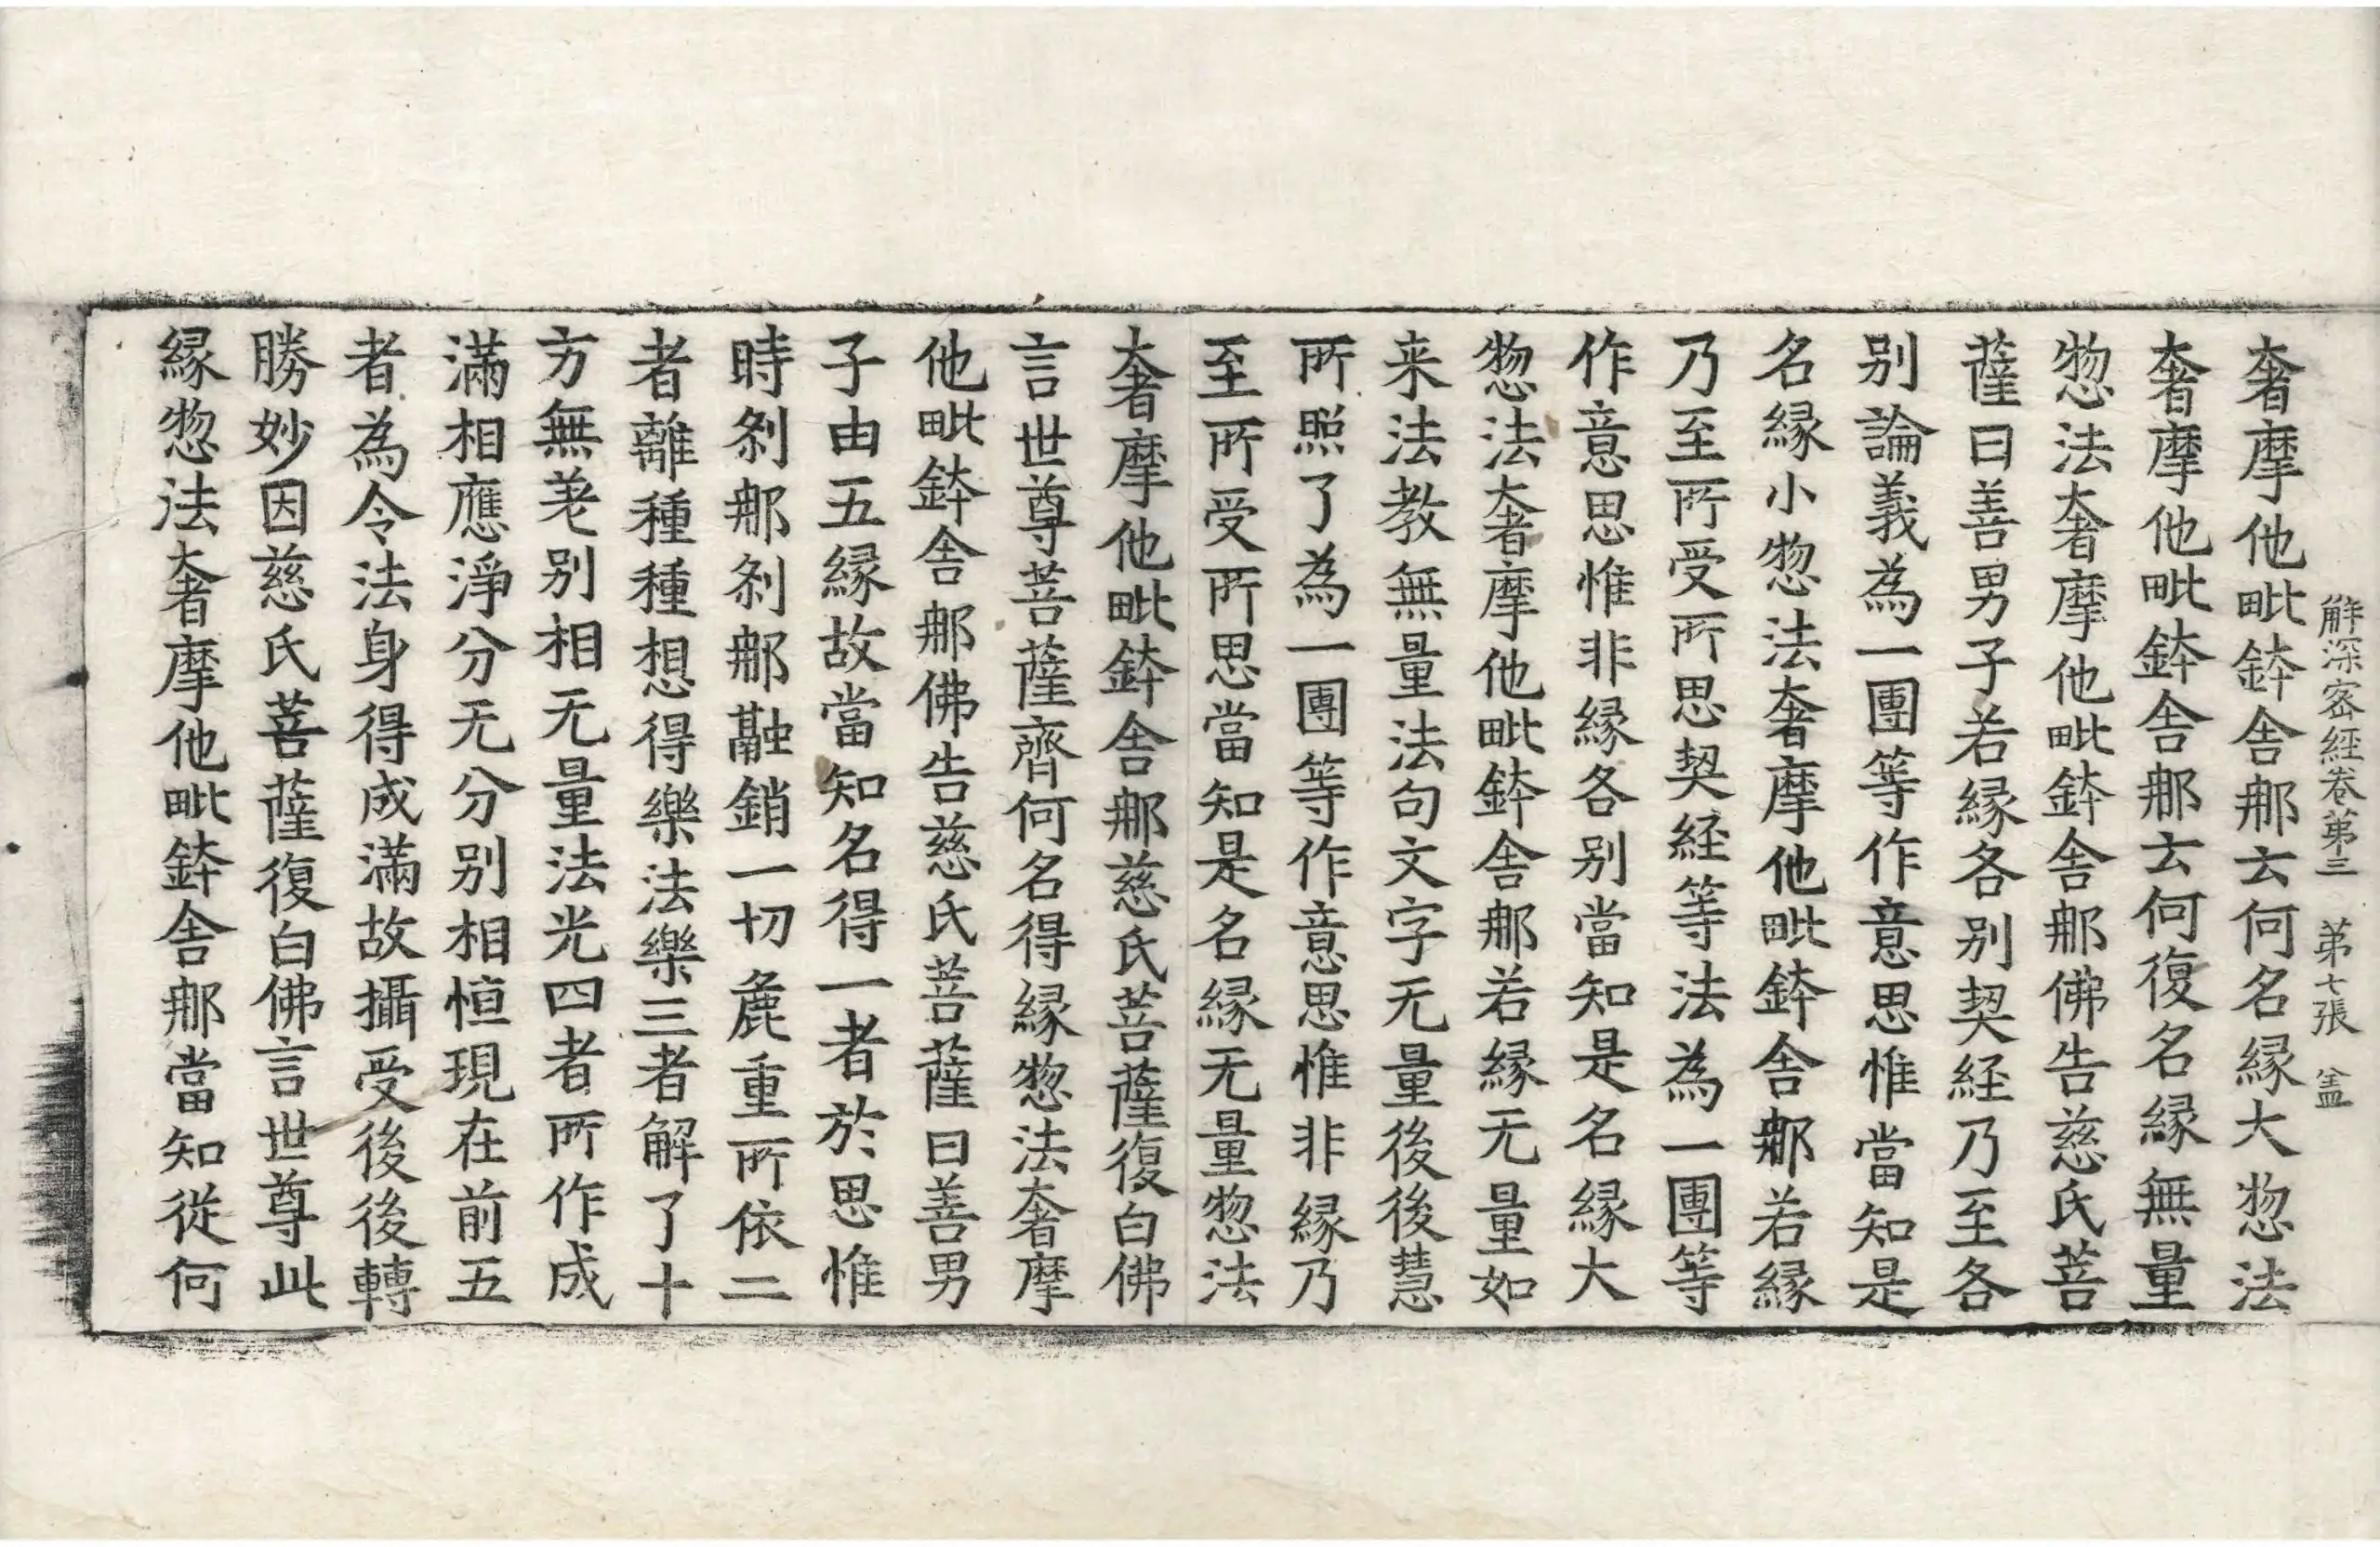 解深密經卷第三　第七張　盖
奢摩他毗鉢舍那云何名緣大惣法
奢摩他毗鉢舍那云何復名緣無量
惣法奢摩他毗鉢舍那佛告慈氏菩
薩曰善男子若緣各別契経乃至各
別論義為一團等作意思惟當知是
名緣小惣法奢摩他毗鉢舍那若緣
乃至所受所思契経等法為一團等
作意思惟非緣各別當知是名緣大
惣法奢摩他毗鉢舍那若緣无量如
来法教無量法句文字无量後後慧
所照了為一團等作意思惟非緣乃
至所受所思當知是名緣无量惣法
奢摩他毗鉢舍那慈氏菩薩復白佛
言世尊菩薩齊何名得緣惣法奢摩
他毗鉢舍那佛告慈氏菩薩曰善男
子由五緣故當知名得一者於思惟
時刹那刹那融銷一切麁重所依二
者離種種想得樂法樂三者解了十
方無差別相无量法光四者所作成
滿相應淨分无分別相恒現在前五
者為令法身得成滿故攝受後後轉
勝妙因慈氏菩薩復白佛言世尊此
緣惣法奢摩他毗鉢舍那當知從何